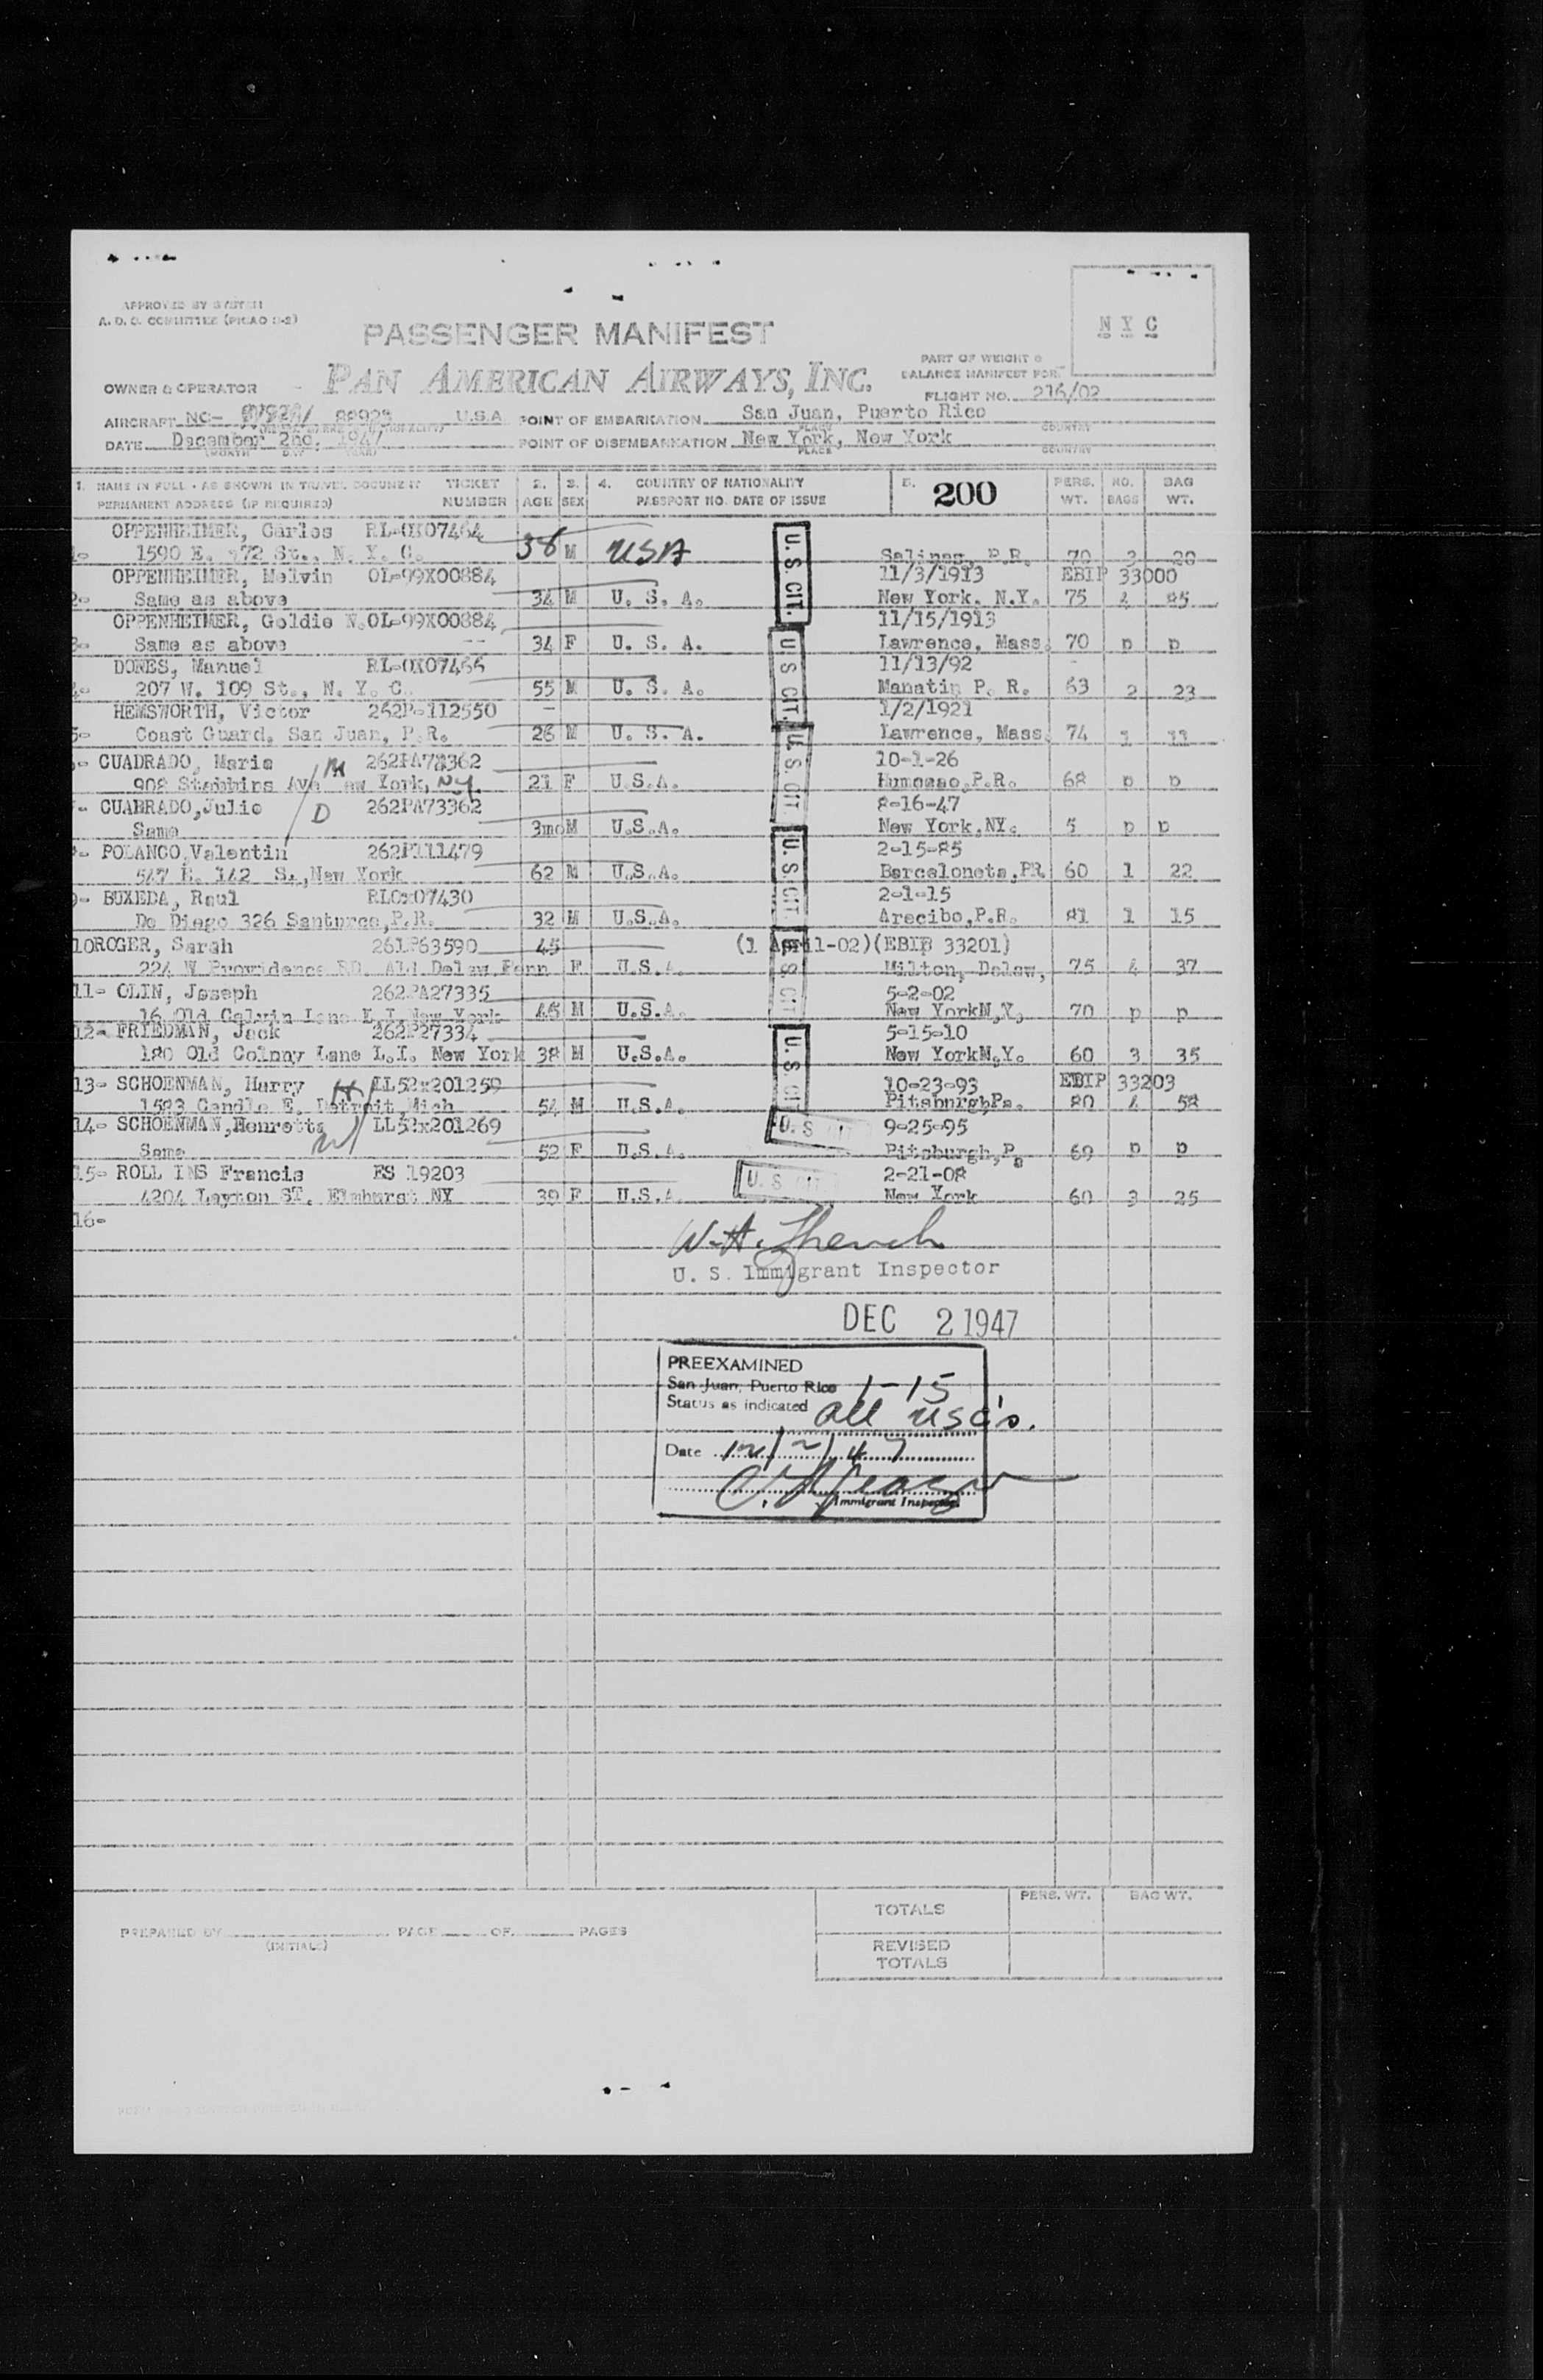 APPROVED BY SYSTEM
A. O. C. COMMITTEE (PICAO
N Y C
PASSENGER MANIFEST
PART OF WEIGHT &
BALANCE MANIFEST FOR
OWNER & OPERATOR - PAN AMERICAN AIRWAYS, INC.
FLIGHT NO. 216/02
AIRCRAFT NC- 88923 U.S.A. POINT OF EMBARKATION San Juan, Puerto Rico
PLACE COUNTRY
DATE December 2nd, 1947 POINT OF DISEMBARKATION New York, New York
(MONTH DAY YEAR) PLACE COUNTRY
1. NAME IN FULL - AS SHOWN IN TRAVEL DOCUMENT TICKET 2. 3. 4. COUNTRY OF NATIONALITY 5. 200 PERS. NO. BAG
PERMANENT ADDRESS (IF REQUIRED) NUMBER AGE SEX PASSPORT NO. DATE OF ISSUE WT. BAGS WT.
OPPENHEIMER, Carlos RL-0X07464
1590 E. 172 St., N. Y. C. 38 M USA U.S. CIT. Salinas, P.R. 70 3 20
OPPENHEIMER, Melvin OL-99X00884 11/3/1913 EBIP 33000
Same as above 34 M U. S. A. New York, N.Y. 75 4 85
OPPENHEIMER, Goldie N. OL-99X00884 11/15/1913
Same as above 34 F U. S. A. U S CIT. Lawrence, Mass. 70 p p
DONES, Manuel RL-0X07466 11/13/92
207 W. 109 St., N. Y. C. 55 M U. S. A. Manatin P. R. 63 2 23
HEMSWORTH, Victor 262P-112550 1/2/1921
5- Coast Guard, San Juan, P.R. 26 M U. S. A. U. S. CIT Lawrence, Mass. 74 1 11
CUADRADO, Maria M 262PA73362 10-1-26
908 Stebbins Ave New York, NY. 21 F U.S.A. Humacao,P.R. 68 p p
CUABRADO,Julio D 262PA73362 8-16-47
Same 3mo M U.S.A. New York,NY. 5 p p
POLANCO,Valentin 262P111479 2-15-85
547 E. 142 S.,New York 62 M U.S.A. U. S. CIT Barceloneta,PR 60 1 22
BUXEDA, Raul RLOx07430 2-1-15
De Diego 326 Santurce,P.R. 32 M U.S.A. Arecibo,P.R. 81 1 15
10ROGER, Sarah 261P63590 45 (1 April-02)(EBIP 33201)
224 W Providence RD. Ald Delaw,Penn F U.S.A. Milton, Delaw, 75 4 37
11- OLIN, Joseph 262PA27335 5-2-02
16 Old Calvin Lane L.I. New York 45 M U.S.A. New YorkN,Y, 70 p p
12- FRIEDMAN, Jack 262P27334 5-15-10
180 Old Colnny Lane L.I. New York 38 M U.S.A. U. S. CI New YorkN.Y. 60 3 35
13- SCHOENMAN, Harry H LL52x201259 10-23-93 EBIP 33203
1583 Candle E. Detroit,Mich 54 M U.S.A. Pitsburgh,Pa. 80 4 58
14- SCHOENMAN,Henretta W LL52x201269 U. S CIT 9-25-95
Same 52 F U.S.A. Pitsburgh,Pa 69 p p
15- ROLL INS Francis ES 19203 U. S CIT 2-21-08
4204 Layton ST. Elmhurst NY 39 F U.S.A New York 60 3 25
16-
U. S. Immigrant Inspector
DEC 2 1947
PREEXAMINED
San Juan, Puerto Rico 1-15
Status as indicated all usc's.
Date 12/2/47
Immigrant Inspector
TOTALS PERS. WT. BAG WT.
PREPARED BY PAGE OF PAGES
(INITIALS)
REVISED
TOTALS